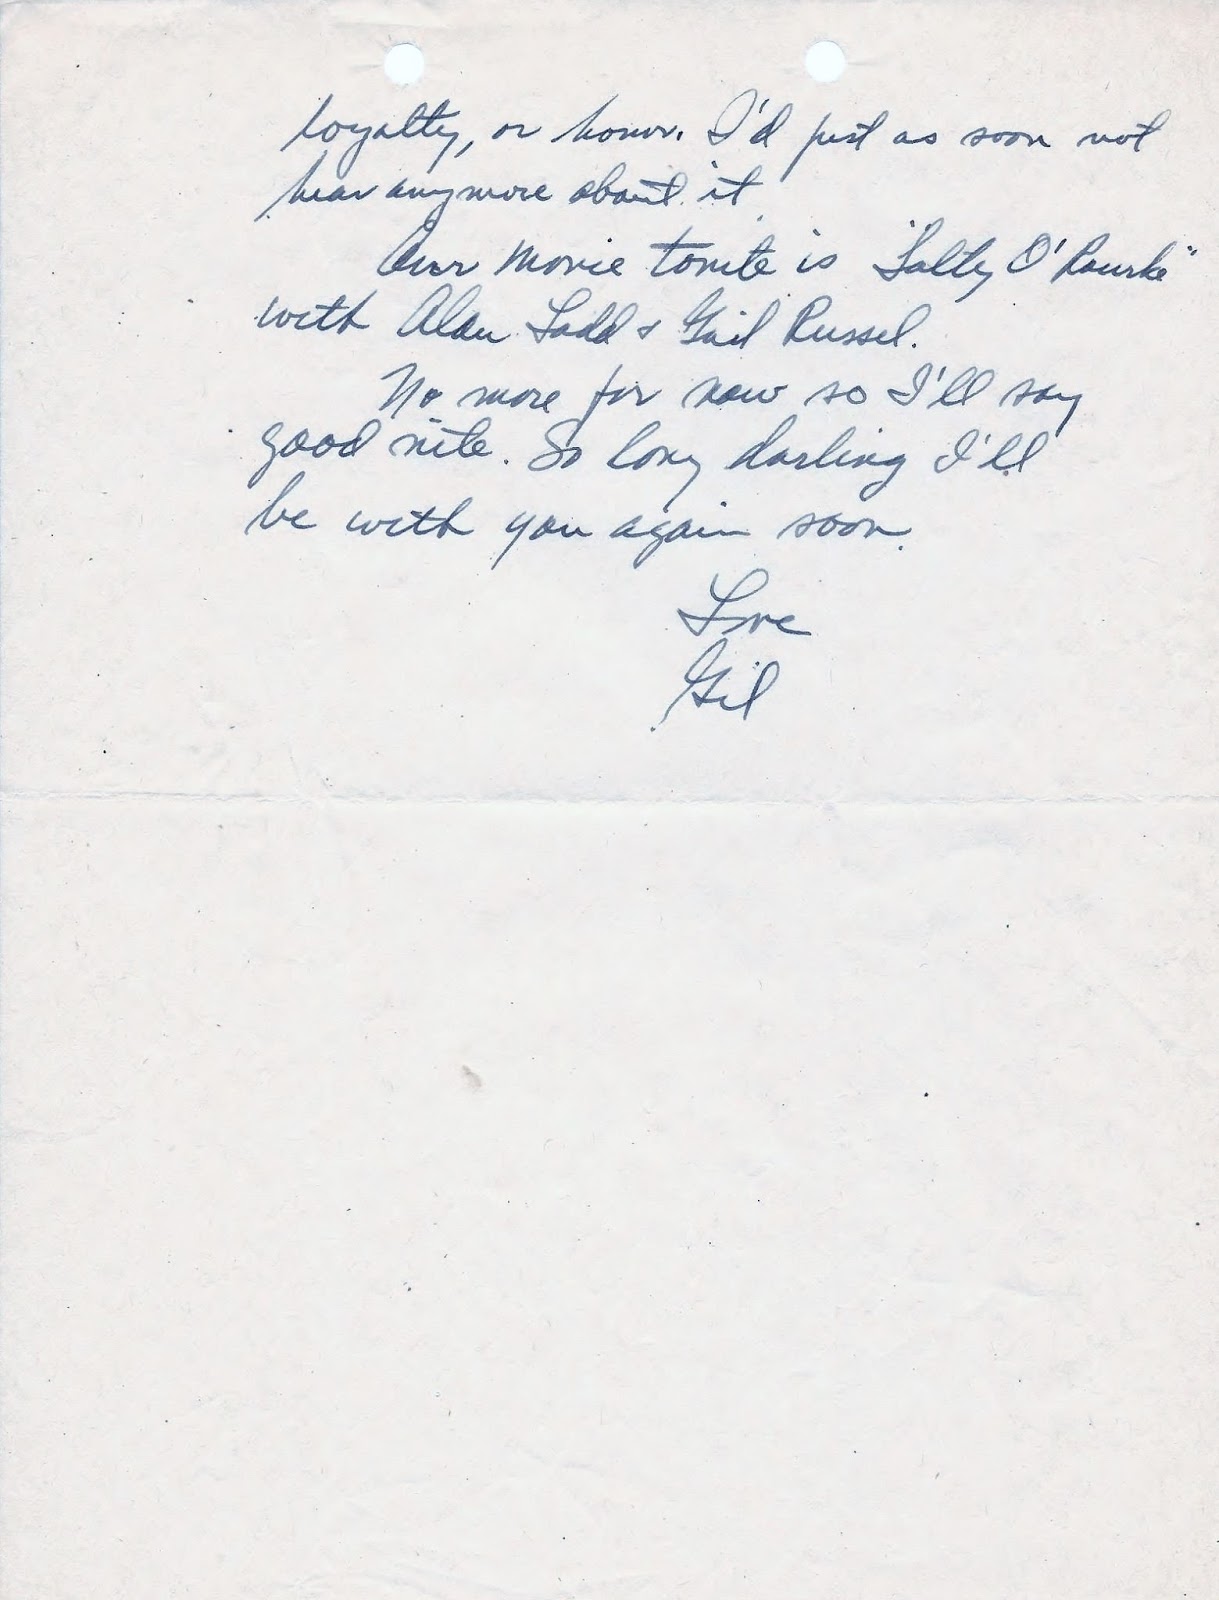 loyalty, or honor. I'd just as soon not
hear anymore about it.
Our movie tonite is "Salty O'Rourke"
with Alan Ladd & Gail Russel.
No more for now so I'll say
good nite. So long darling I'll
be with you again soon.
Love
Gil